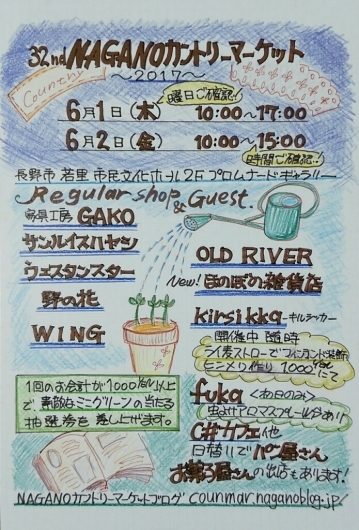 32nd NAGANOカントリーマーケット
～2017～
Country
6月1日(木) 10:00～17:00
曜日ご確認!
6月2日(金) 10:00～15:00
時間ご確認!
長野市 若里 市民文化ホール2F プロムナードギャラリー
Regular shop & Guest.
家具工房 GAKO
サンルイスハヤシ
ウェスタンスター
野の花
WING
OLD RIVER
New! ほのぼの雑貨店
kirsikka -キルシッカ-
開催中 随時
ライ麦ストローでフィンランド装飾
ヒンメリ作り 1000円にて
fuka <初日のみ>
虫よけアロマスプレー作りあり
C#カフェ他
日替りでパン屋さん
お菓子屋さんの出店もあります!
1回のお会計が1000円以上
で、素敵なミニグリーンの当たる
抽選券を差し上げます。
NAGANOカントリーマーケットブログ counmar.naganoblog.jp/